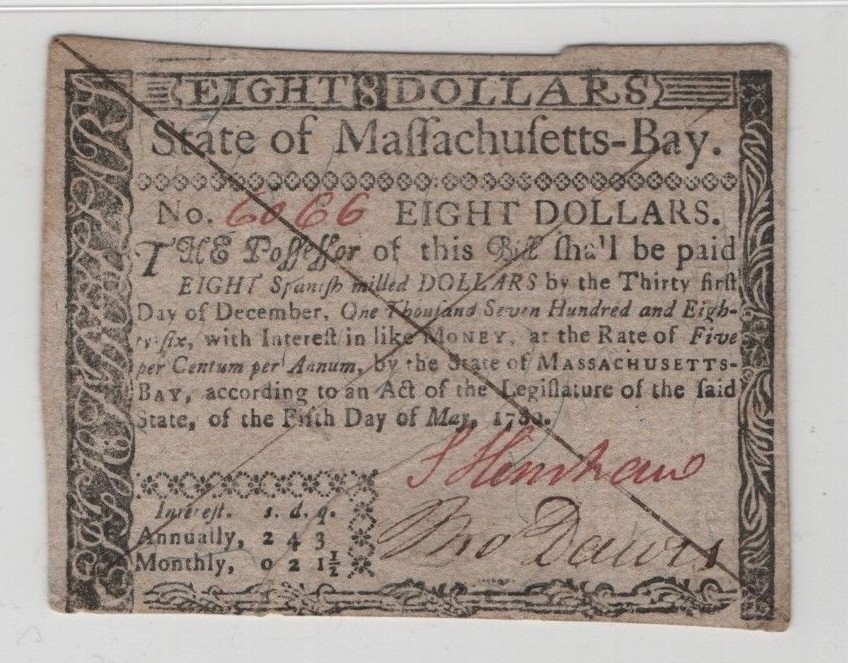 EIGHT 8 DOLLARS
State of Maſſachuſetts-Bay.
No. 6066 EIGHT DOLLARS.
THE Poſſeſſor of this Bill ſhall be paid
EIGHT Spaniſh milled DOLLARS by the Thirty firſt
Day of December, One Thouſand Seven Hundred and Eigh-
ty-ſix, with Intereſt in like MONEY, at the Rate of Five
per Centum per Annum, by the State of MASSACHUSETTS-
BAY, according to an Act of the Legiſlature of the ſaid
State, of the Fifth Day of May, 1780.
S Henshaw
Intereſt. s. d. q.
Annually, 2 4 3
Monthly, 0 2 1½
Tho Dawes